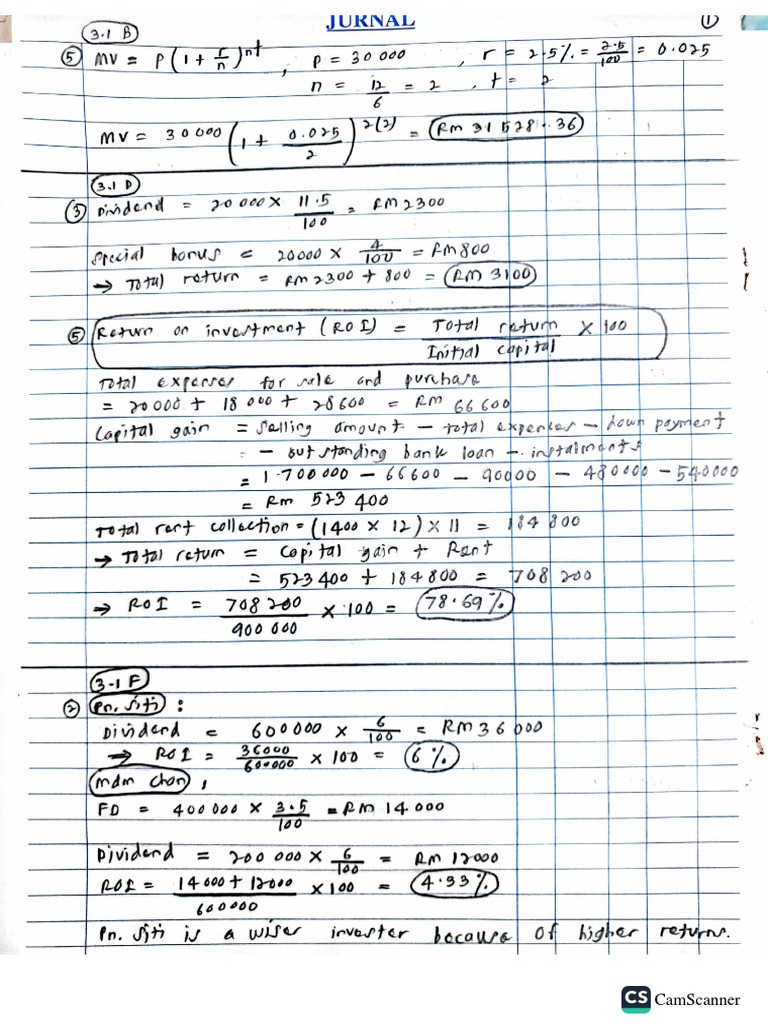 JURNAL
①
3.1 B
⑤ MV = P(1 + r/n)^nt , P = 30 000 , r = 2.5% = 2.5/100 = 0.025
n = 12/6 = 2 , t = 2
MV = 30 000 (1 + 0.025/2)^2(2) = RM 31 528.36
3.1 D
③ Dividend = 20 000 × 11.5/100 = RM 2300
Special bonus = 20000 × 4/100 = RM 800
→ Total return = RM 2300 + 800 = RM 3100
⑤ Return on investment (ROI) = Total return/Initial capital × 100
Total expenses for sale and purchase
= 20 000 + 18 000 + 28 600 = RM 66 600
Capital gain = Selling amount - total expenses - down payment
= - outstanding bank loan - instalments
= 1 700 000 - 66 600 - 90 000 - 480 000 - 540 000
= RM 523 400
Total rent collection = (1400 × 12) × 11 = 184 800
→ Total return = Capital gain + Rent
= 523 400 + 184 800 = 708 200
→ ROI = 708 200/900 000 × 100 = 78.69%
3.1 F
② Pn. Siti :
Dividend = 600 000 × 6/100 = RM 36 000
→ ROI = 36000/600000 × 100 = 6%
Mdm Chan ,
FD = 400 000 × 3.5/100 = RM 14 000
Dividend = 200 000 × 6/100 = RM 12000
ROI = 14 000 + 12000/600000 × 100 = 4.33%
Pn. Siti is a wiser investor because of higher returns.
CS CamScanner